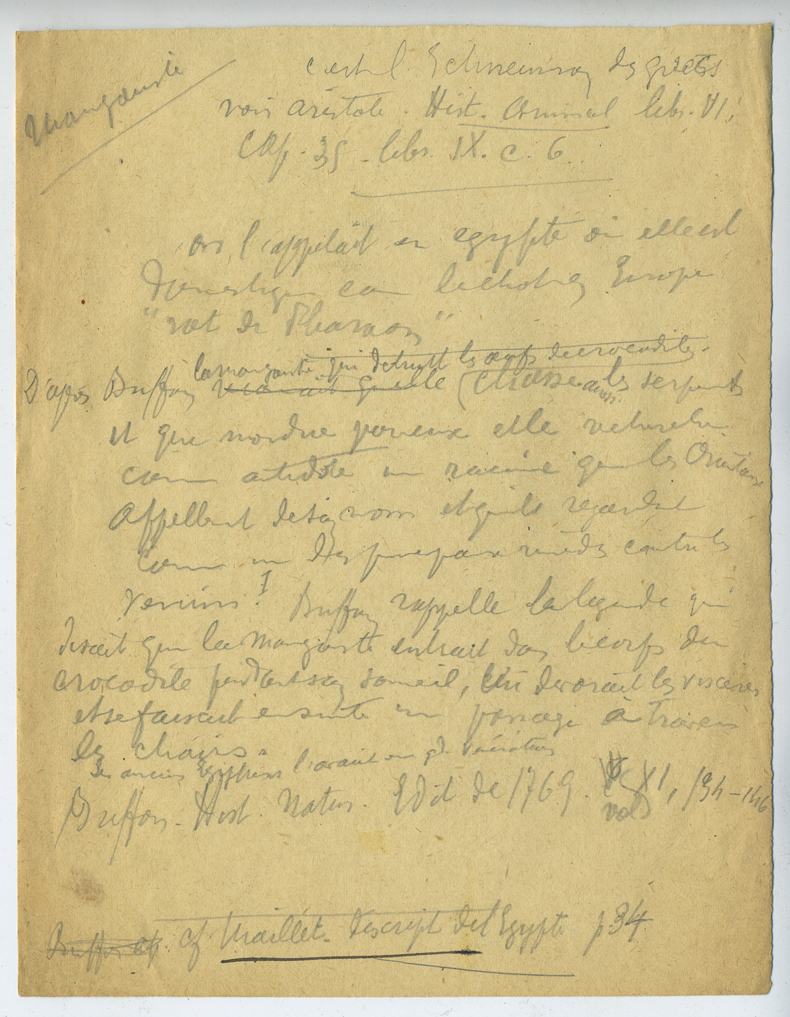 Mangouste
c'est l' Ichneumon des grecs
voir aristote. Hist. Animal libr. VI,
Cap. 35 - libr. IX. c. 6.
on l'appelait en egypte où elle est
Domestique com le chat en Europe
"rat de Pharaon"
la mangouste qui detruit les œufs de crocodiles.
D'après Buffon (chasse aussi les serpents
et que mordue par eux elle
com antidote un racine que les Orientaux
appellent de son nom et qu'ils regardent
com un des principaux remèdes contre les
venins. Buffon rappelle la legende qui
disait que la mangouste entrait dans le corps du
crocodile pendant son someil, lui devorait les viscères
et se faisait ensuite un passage à travers
les chairs.
Les anciens Egyptiens l'avait en gde vénération
Buffon. Hist. Natur. Edit de 1769. XI, 134-146
vol
Buffon cf Maillet. Descript de l'Egypte p 34